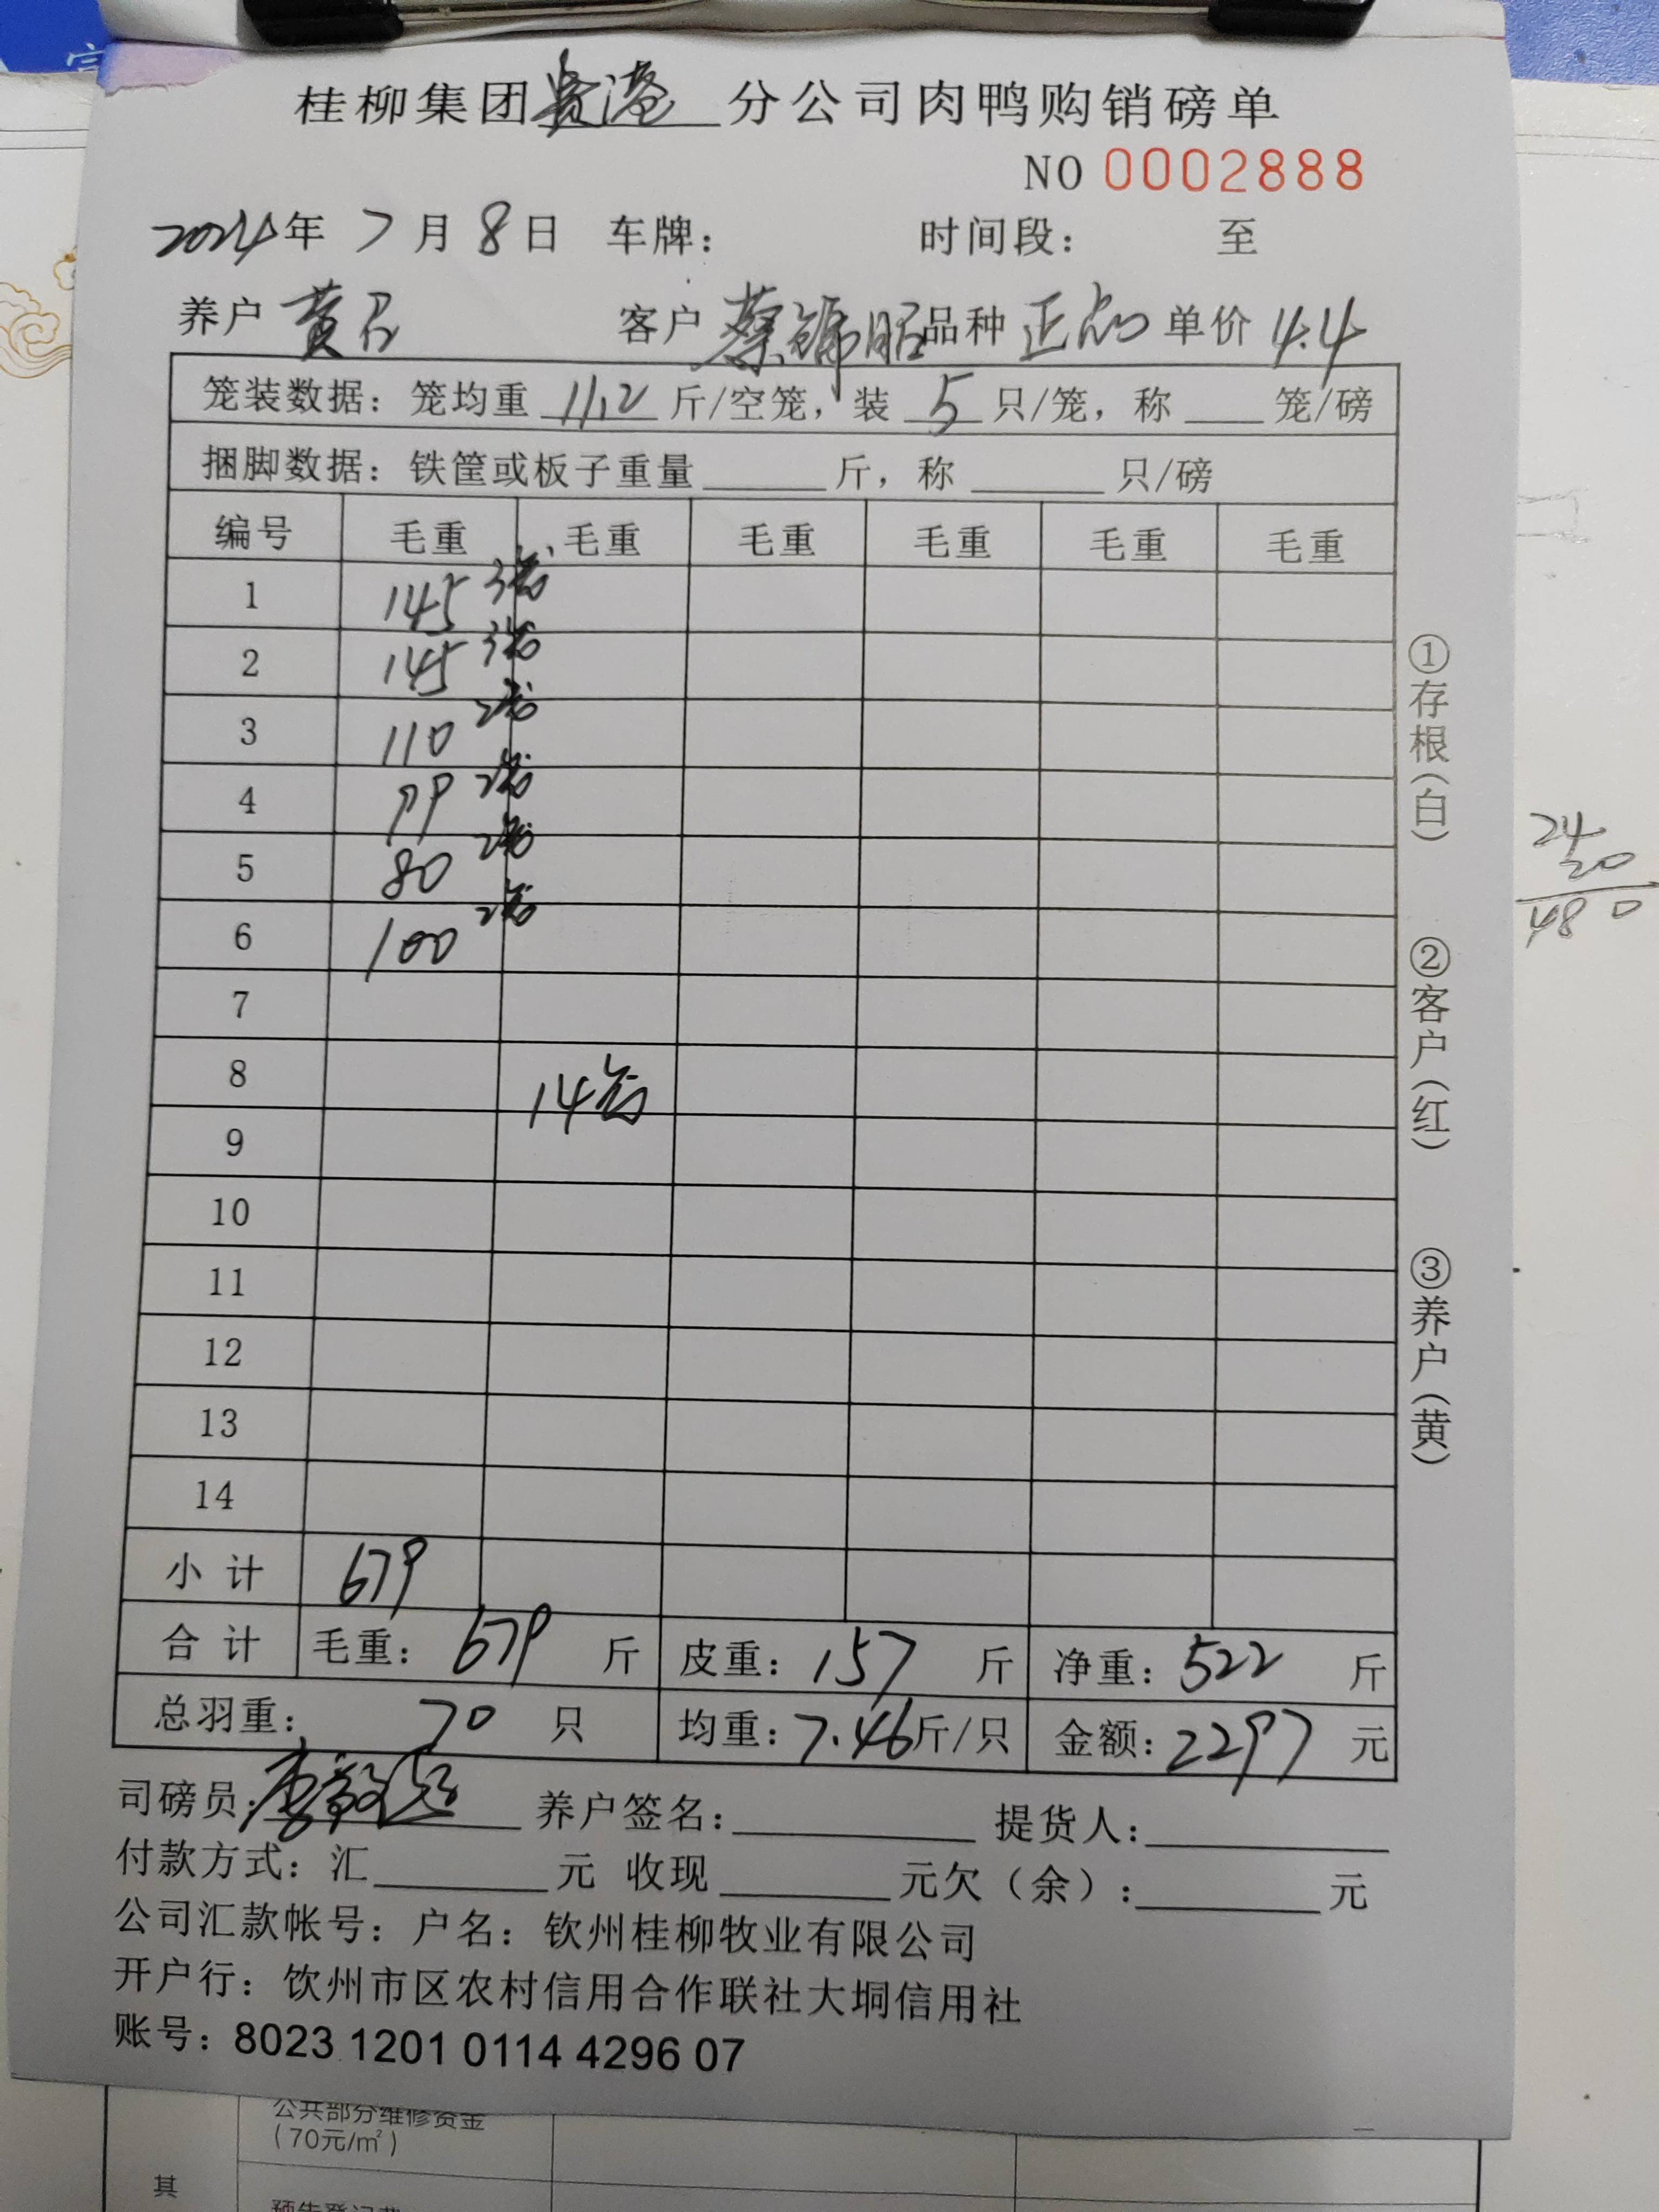 桂柳集团贵港分公司肉鸭购销磅单
NO 0002888
2024年 7月 8日 车牌： 时间段： 至
养户 黄 客户 蔡锦昭 品种 正品 单价 4.4
笼装数据：笼均重 11.2 斤/空笼，装 5 只/笼，称 笼/磅
捆脚数据：铁筐或板子重量 斤，称 只/磅
编号 毛重 毛重 毛重 毛重 毛重 毛重
1 145 3笼
2 145 3笼
3 110 2笼
4 99 2笼
5 80 2笼
6 100 2笼
7
8 14笼
9
10
11
12
13
14
小计 679
合计 毛重：679 斤 皮重：157 斤 净重：522 斤
总羽重：70 只 均重：7.46斤/只 金额：2297 元
司磅员： 养户签名： 提货人：
付款方式：汇 元 收现 元欠（余）： 元
公司汇款帐号：户名：钦州桂柳牧业有限公司
开户行：饮州市区农村信用合作联社大垌信用社
账号：8023 1201 0114 4296 07
①存根（白）
②客户（红）
③养户（黄）
24
20
480
公共部分维修资金
（70元/㎡）
其